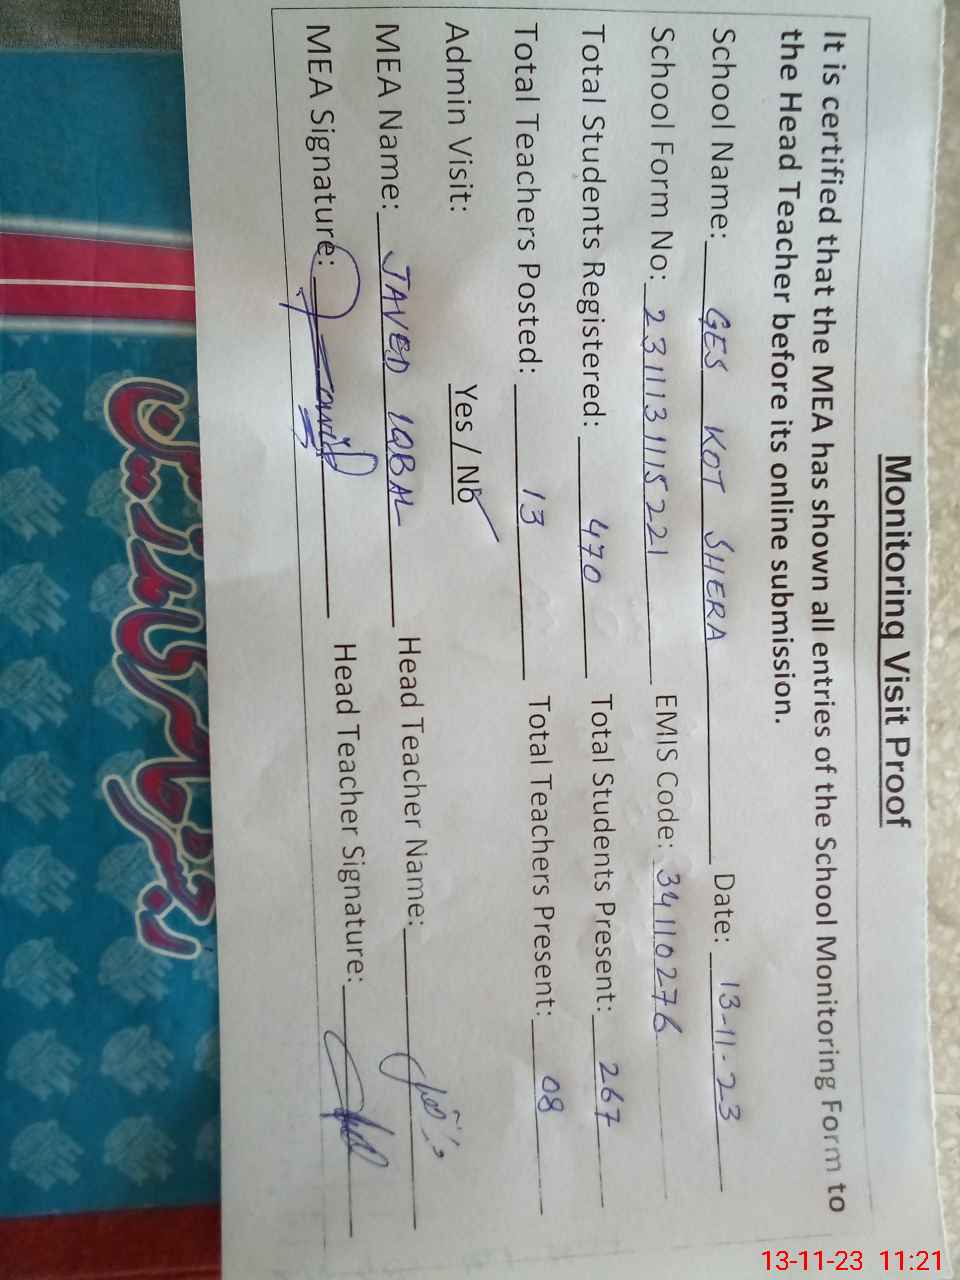 Monitoring Visit Proof
It is certified that the MEA has shown all entries of the School Monitoring Form to
the Head Teacher before its online submission.
School Name: GES KOT SHERA Date: 13-11-23
School Form No: 2311131115221 EMIS Code: 34110276
Total Students Registered: 470 Total Students Present: 267
Total Teachers Posted: 13 Total Teachers Present: 08
Admin Visit: Yes / No
MEA Name: JAVED IQBAL Head Teacher Name:
MEA Signature: Head Teacher Signature:
13-11-23 11:21